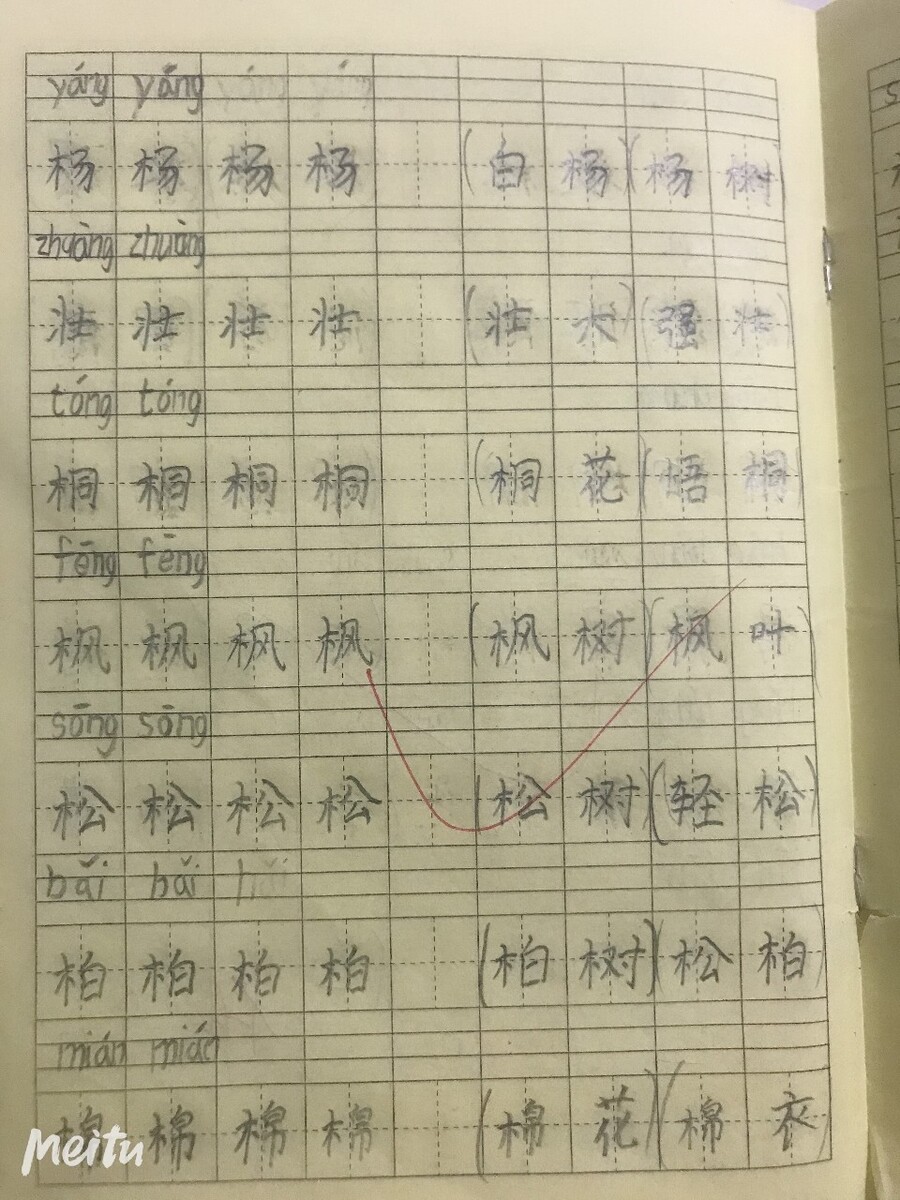 yáng yáng
杨 杨 杨 杨 (白 杨)(杨 树)
zhuàng zhuàng
壮 壮 壮 壮 (壮 大)(强 壮)
tóng tóng
桐 桐 桐 桐 (桐 花)(梧 桐)
fēng fēng
枫 枫 枫 枫 (枫 树)(枫 叶)
sōng sōng
松 松 松 松 (松 树)(轻 松)
bǎi bǎi
柏 柏 柏 柏 (柏 树)(松 柏)
mián mián
棉 棉 棉 棉 (棉 花)(棉 衣)
Meitu